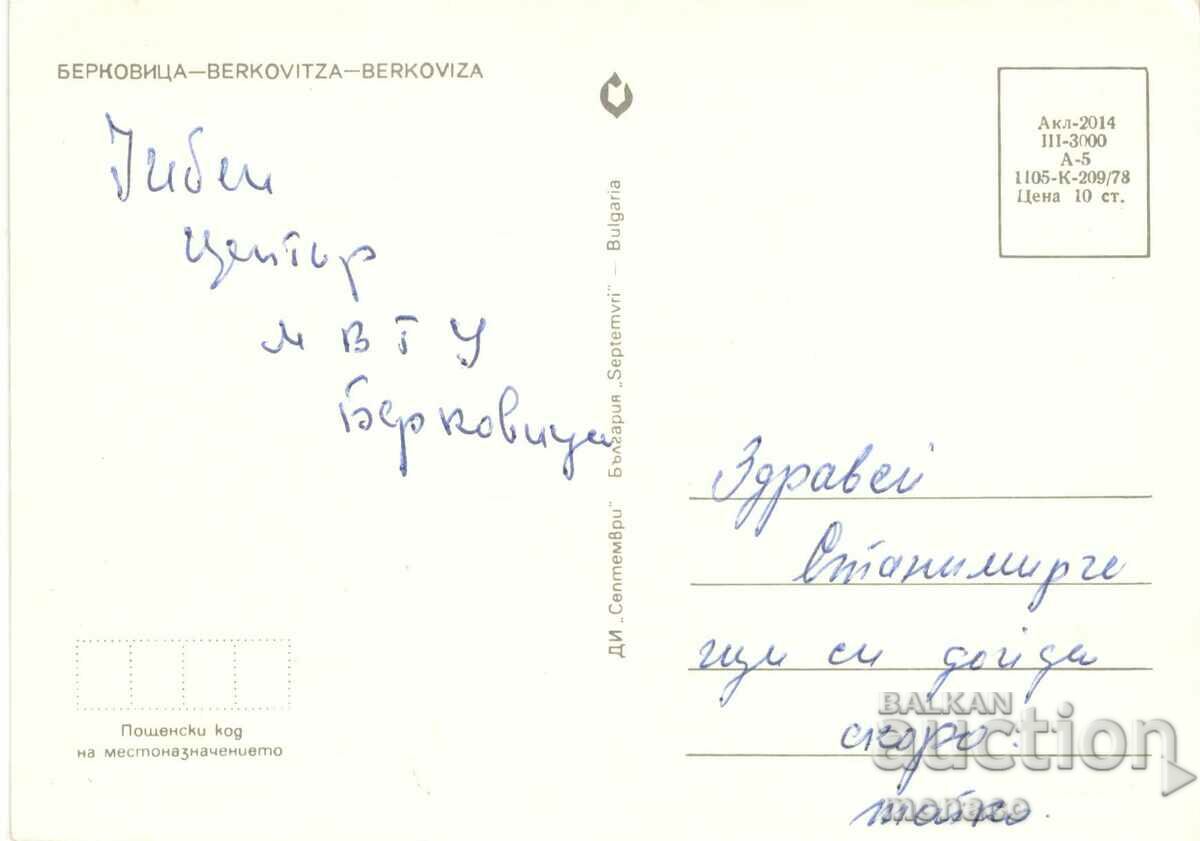 БЕРКОВИЦА—BERKOVITZA—BERKOVIZA
Учебен
център
МВТУ
Берковица
Пощенски код
на местоназначението
ДИ „Септември" България „Septemvri" — Bulgaria
Акл-2014
III-3000
А-5
1105-К-209/78
Цена 10 ст.
Здравей
Станимирче
ще си дойда
скоро.
татко.
BALKAN
auction